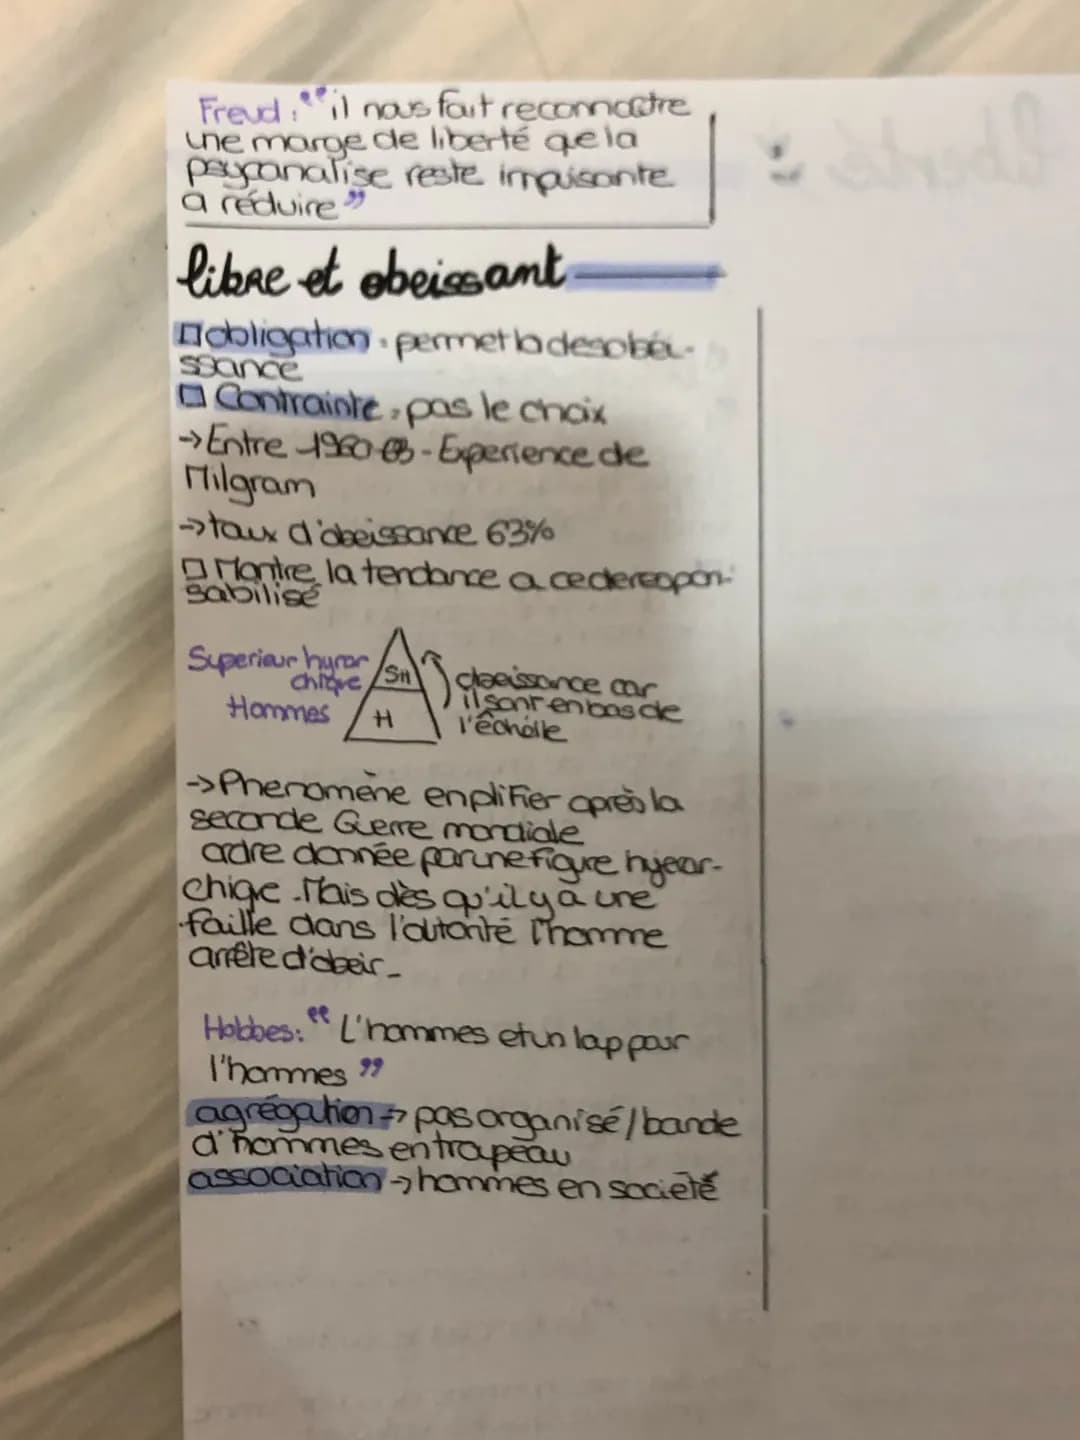 Freud : “il nous faut reconnaatre
une marge de liberté que la
psycanalise reste impuisante
a réduire”
libre et obeissant
obligation : permet la desobéi-
ssance
Contrainte : pas le choix
→Entre 1960-63 - Experience de
Milgram
→taux d'obeissance 63%
Montre la tendance a cederespon-
sabilisé
Superieur hyrar
chique
Hommes
SH
H
obeissance car
il sont en bas de
l'êchelle
→Phenomène enplifier après la
seconde Guerre mondiale
ordre donnée par une figure hyear-
chique. Mais dès qu'il y a une
faille dans l'autorité l'homme
arrête d'obeir_
Hobbes: “L'hommes et un lap pour
l'hommes”
agrégation → pas organisé/bande
d'hommes en trapeau
association → hommes en societé
liberté :